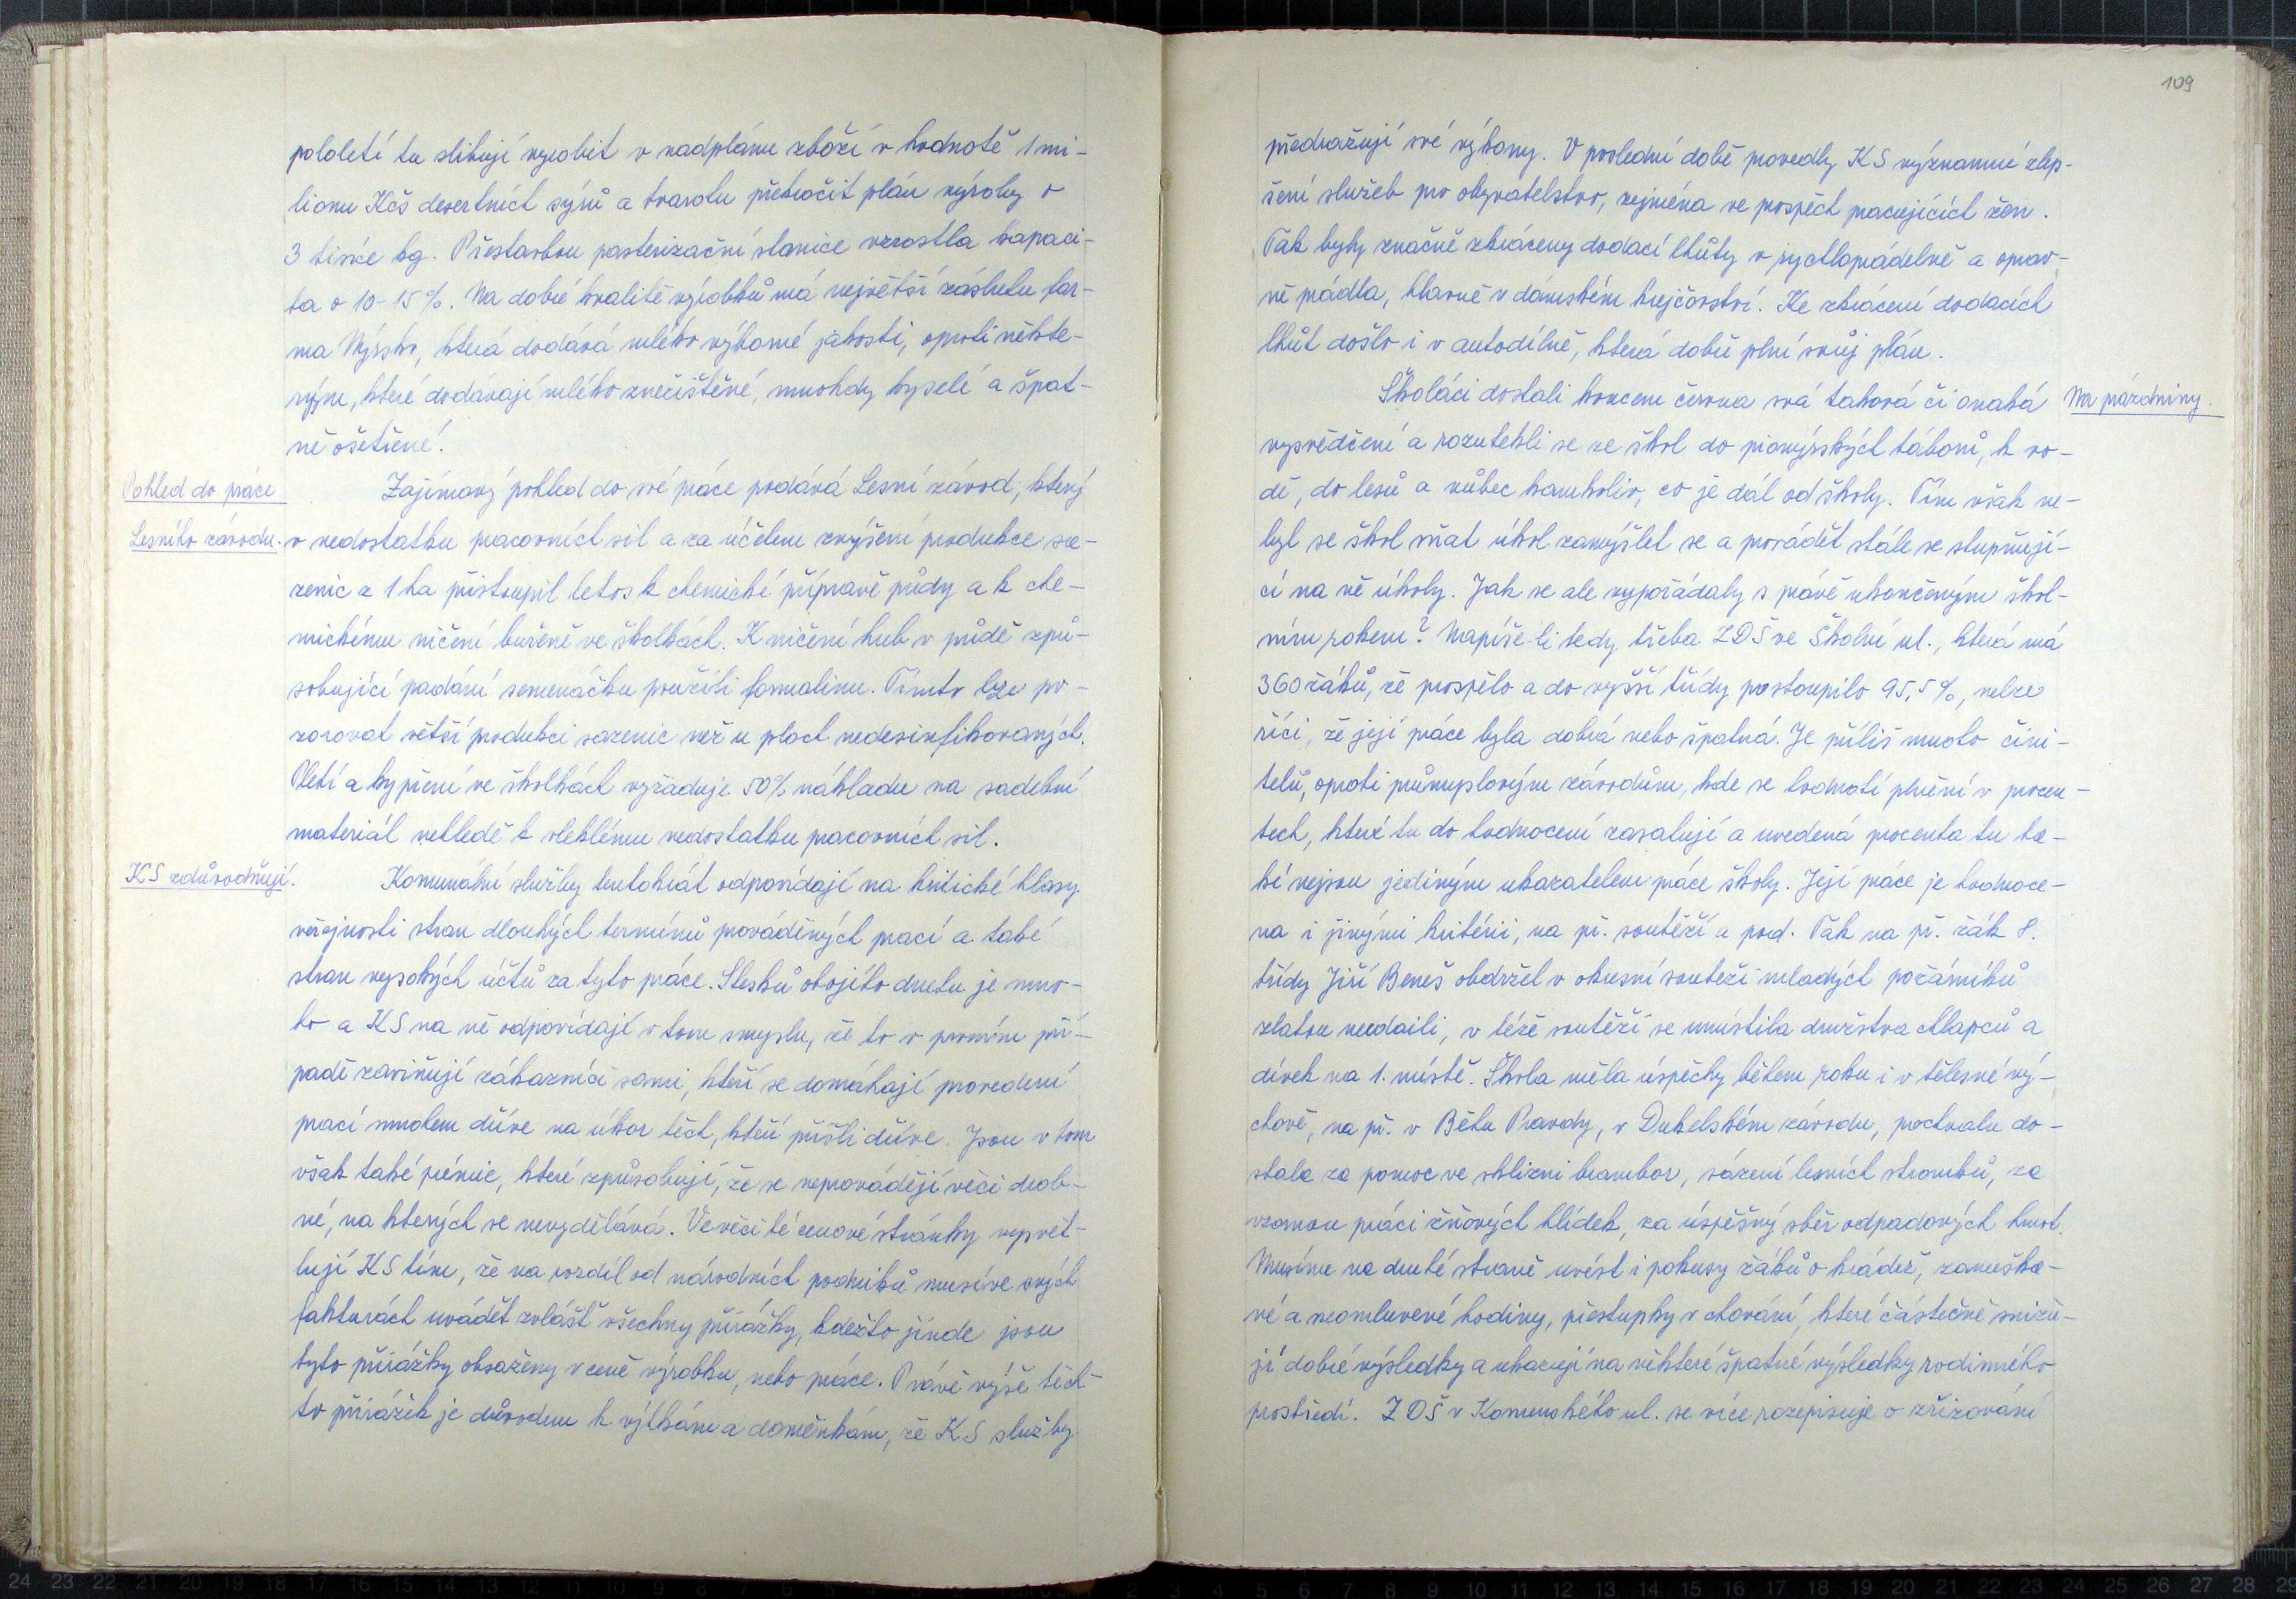 pololetí tu slibují vyrobit v nadplánu zboží v hodnotě 1 mi-
lionu Kčs desertních sýrů a tvarohu překročit plán výroby o
3 tisíce kg. Přestavbou pasterizační stanice vzrostla kapaci-
ta o 10-15 %. Na dobré kvalitě výrobků má největší zásluhu far-
ma Nýrsko, která dodává mléko výborné jakosti, oproti někte-
rým, které dodávají mléko znečištěné, mnohdy kyselé a špat-
ně ošetřené!
Pohled do práce
Lesního závodu.
Zajímavý pohled do své práce podává Lesní závod, který
v nedostatku pracovních sil a za účelem zvýšení produkce sa-
zenic z 1 ha přistoupil letos k chemické přípravě půdy a k che-
mickému ničení buřeně ve školkách. K ničení hub v půdě způ-
sobující padání semenáčku použili formalinu. Tímto lze po-
zorovat větší produkci sazenic než u ploch nedesinfikovaných.
Pletí a kypření ve školkách vyžaduje 50% nákladu na sadební
materiál nehledě k vleklému nedostatku pracovních sil.
KS zdůvodňují.
Komunální služby tentokrát odpovídají na kritické hlasy
veřejnosti stran dlouhých termínů prováděných prací a také
stran vysokých účtů za tyto práce. Stesků obojího druhu je mno-
ho a KS na ně odpovídají v tom smyslu, že to v prvním pří-
padě zaviňují zákazníci sami, kteří se domáhají provedení
prací mnohem dříve na úkor těch, kteří přišli dříve. Jsou v tom
však také prémie, které způsobují, že se neprovádějí věci drob-
né, na kterých se nevydělává. Ve věci té cenové stránky vysvět-
lují KS tím, že na rozdíl od národních podniků musí ve svých
fakturách uvádět zvlášť všechny přirážky, kdežto jinde jsou
tyto přirážky obsaženy v ceně výrobku, nebo práce. Právě výše těch-
to přirážek je důvodem k výtkám a domněnkám, že KS služby
109
předražují své výkony. V poslední době provedly KS významné zlep-
šení služeb pro obyvatelstvo, zejména ve prospěch pracujících žen.
Tak byly značně zkráceny dodací lhůty v rychloprádelně a oprav-
ně prádla, hlavně v dámském krejčovství. Ke zkrácení dodacích
lhůt došlo i v autodílně, která dobře plní svůj plán.
Na prázdniny.
Školáci dostali koncem června svá taková či onaká
vysvědčení a rozutekli se ze škol do pionýrských táborů, k vo-
dě, do lesů a vůbec kamkoliv, co je dál od školy. Tím však ne-
byl se škol sňat úkol zamýšlet se a provádět stále se stupňují-
cí na ně úkoly. Jak se ale vypořádaly s právě ukončeným škol-
ním rokem? Napíše-li tedy třeba ZDŠ ve Školní ul., která má
360 žáků, že prospělo a do vyšší třídy postoupilo 95,5 %, nelze
říci, že její práce byla dobrá nebo špatná. Je příliš mnoho čini-
telů, oproti průmyslovým závodům, kde se hodnotí plnění v procen-
tech, které tu do hodnocení zasahují a uvedená procenta tu ta-
ké nejsou jediným ukazatelem práce školy. Její práce je hodnoce-
na i jinými kritérii, na př. soutěží a pod. Tak na př. žák 8.
třídy Jiří Beneš obdržel v okresní soutěži mladých požárníků
zlatou medaili, v téže soutěži se umístila družstva chlapců a
dívek na 1. místě. Škola měla úspěchy během roku i v tělesné vý-
chově, na př. v Běhu Pravdy, v Dukelském závodu, pochvalu do-
stala za pomoc ve sklizni brambor, sázení lesních stromků, za
vzornou práci žňových hlídek, za úspěšný sběr odpadových hmot.
Musíme na druhé straně uvést i pokusy žáků o krádež, zamešка-
né a neomluvené hodiny, přestupky v chování, které částečně snižu-
jí dobré výsledky a ukazují na některé špatné výsledky rodinného
prostředí. ZDŠ v Komenského ul. se více rozepisuje o zřizování